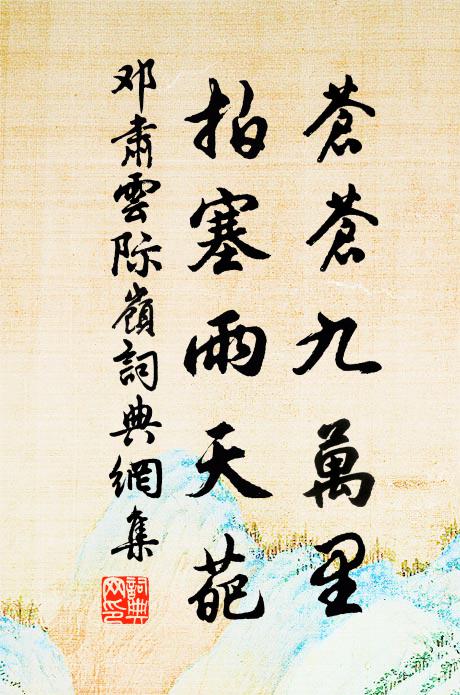 蒼蒼九萬里
拍塞雨天葩
邓肅雲际嶺詞典網集
詞典